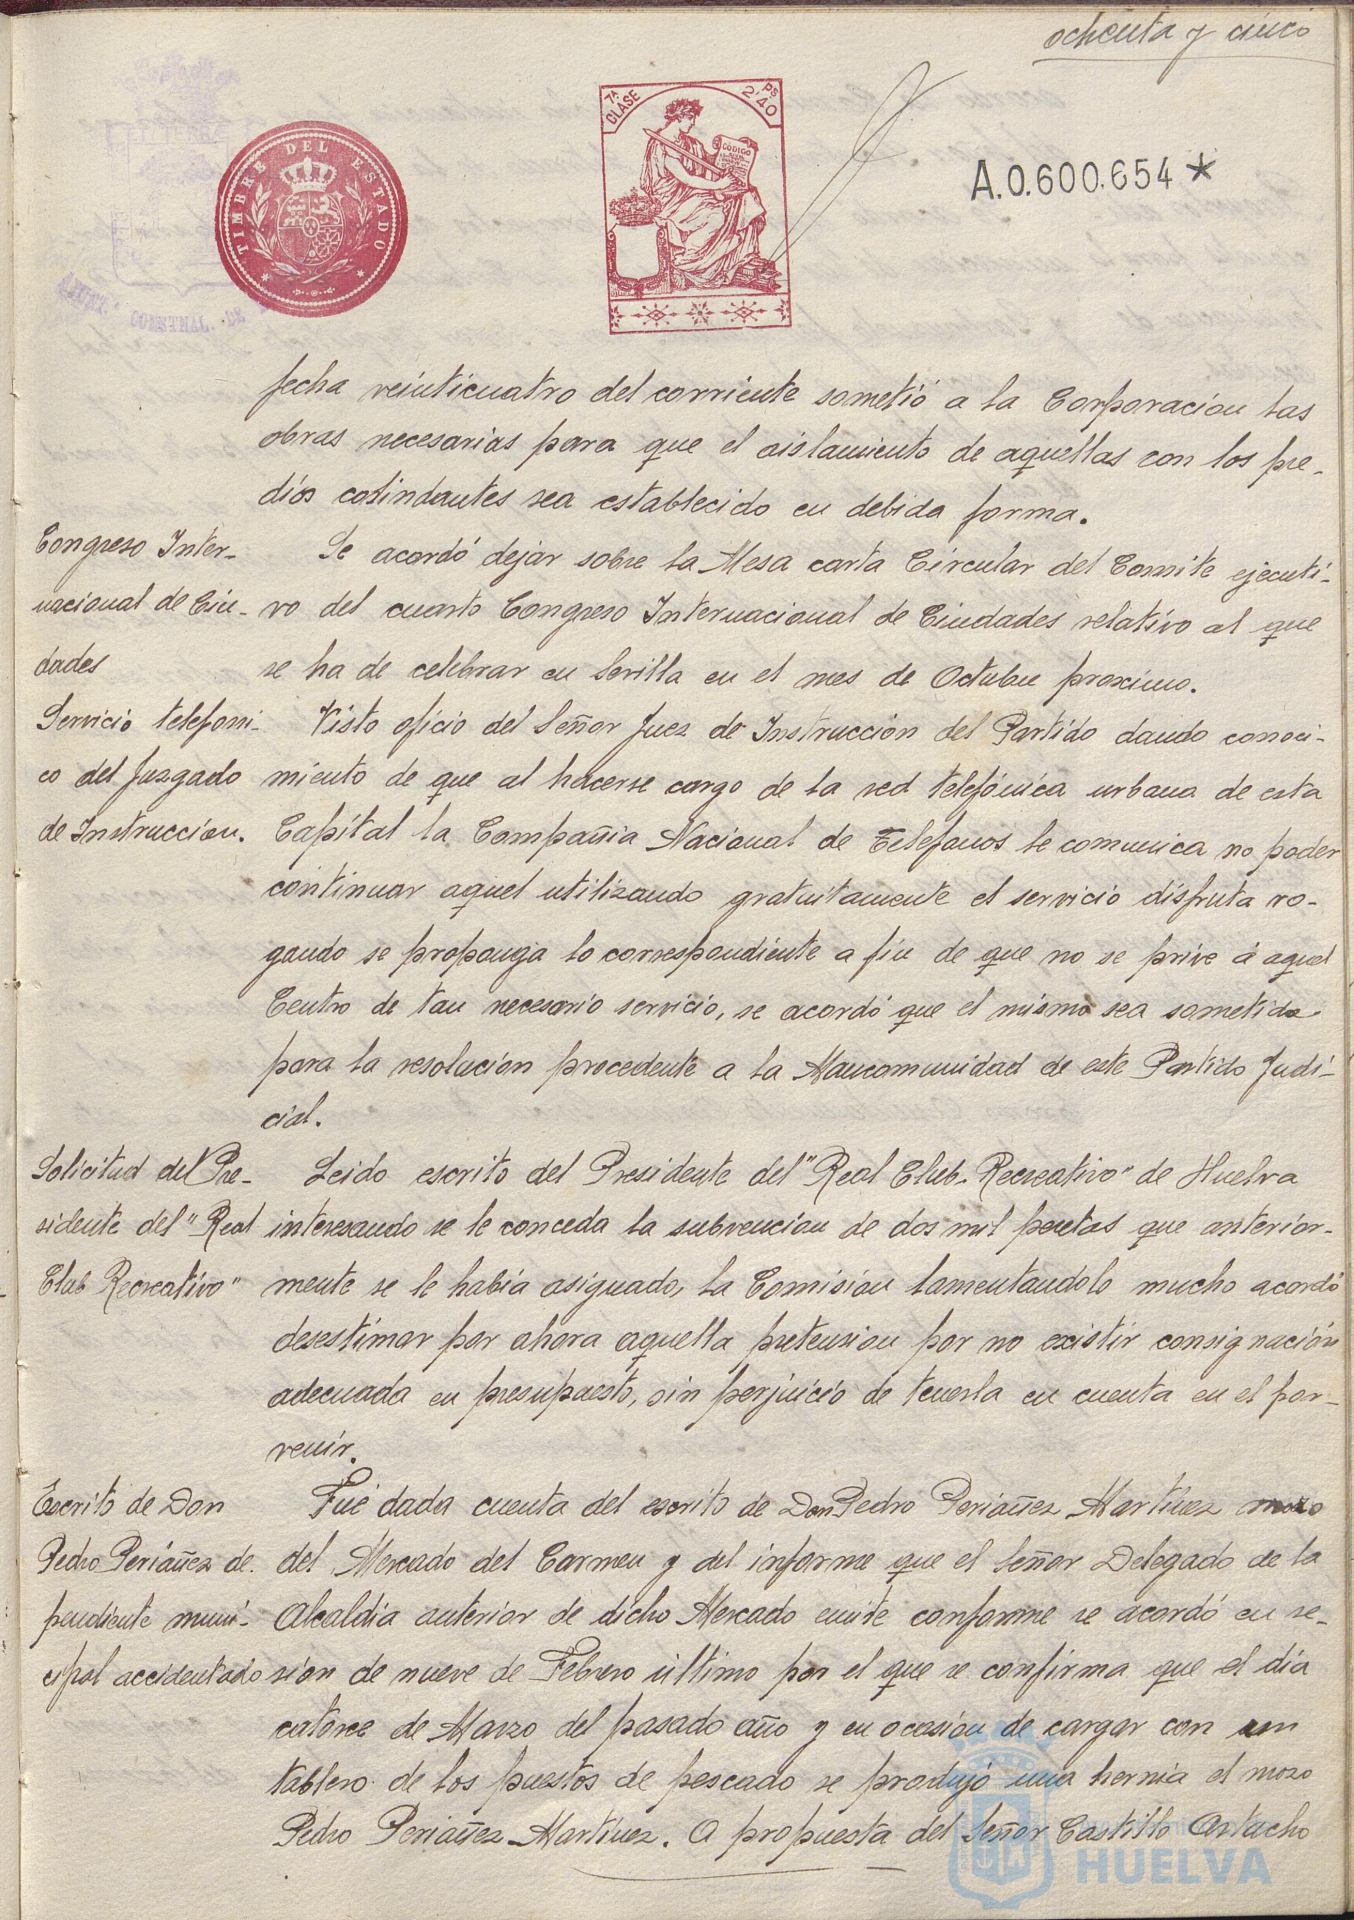 ochenta y cinco
7ª CLASE
Ps 2'40
CODIGO
TIMBRE DEL ESTADO
A.0.600.654 *
fecha veinticuatro del corriente sometió a la Corporacion las
obras necesarias para que el aislamiento de aquellas con los pre-
dios colindantes sea establecido en debida forma.
Congreso Inter-
nacional de Ciu-
dades
Se acordó dejar sobre la Mesa carta Circular del Comite ejecuti-
vo del cuarto Congreso Internacional de Ciudades relativo al que
se ha de celebrar en Sevilla en el mes de Octubre proximo.
Servicio telefoni-
co del Juzgado
de Instruccion.
Visto oficio del Señor Juez de Instrucción del Partido dando conoci-
miento de que al hacerse cargo de la red telefónica urbana de esta
Capital la Compañia Nacional de Telefonos le comunica no poder
continuar aquel utilizando gratuitamente el servicio disfruta ro-
gando se proponga lo correspondiente a fin de que no se prive á aquel
Centro de tan necesario servicio, se acordó que el mismo sea sometido
para la resolucion procedente a la Mancomunidad de este Partido Judi-
cial.
Solicitud del Pre-
sidente del "Real
Club Recreativo"
Leido escrito del Presidente del "Real Club-Recreativo" de Huelva
interesando se le conceda la subvencion de dos mil pesetas que anterior-
mente se le habia asignado, la Comision lamentandolo mucho acordó
desestimar por ahora aquella pretension por no existir consignación
adecuada en presupuesto, sin perjuicio de tenerla en cuenta en el por-
venir.
Escrito de Don
Pedro Periáñez de-
pendiente muni-
cipal accidentado
Fué dada cuenta del escrito de Don Pedro Periañez Martínez mozo
del Mercado del Carmen y del informe que el Señor Delegado de la
Alcaldia anterior de dicho Mercado emite conforme se acordó en se-
sion de nueve de Febrero último por el que se confirma que el dia
catorce de Marzo del pasado año y en ocasión de cargar con un
tablero de los puestos de pescado se produjó una hernia el mozo
Pedro Periañez Martínez. A propuesta del Señor Castillo Artacho
HUELVA